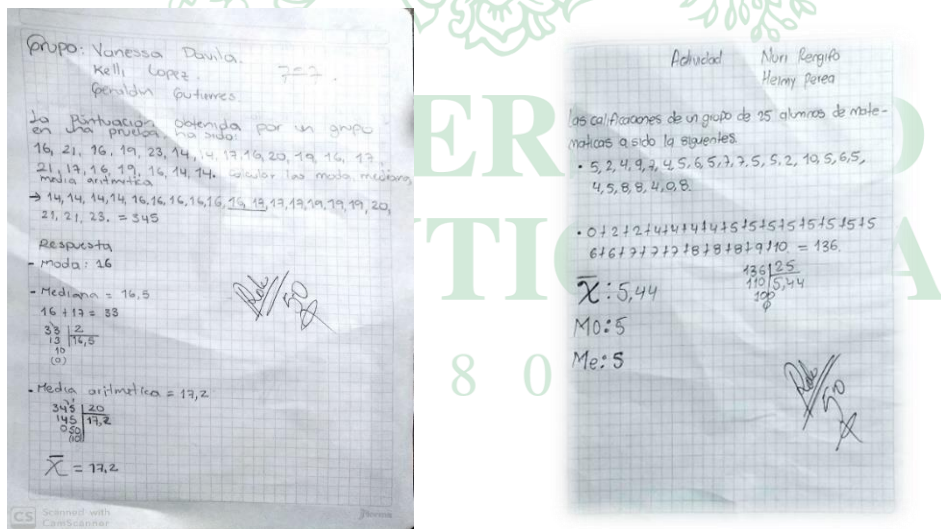 Grupo: Vanessa Davila.
Kelli Lopez.
Geraldin Gutierres
7=7.
La Puntuación obtenida por un grupo
en una prueba, ha sido:
16, 21, 16, 19, 23, 14, 14, 17, 16, 20, 19, 16, 17,
21, 17, 16, 19, 16, 14, 14. Calcular las moda, mediana,
media aritmetica
→ 14, 14, 14, 14, 16, 16, 16, 16, 16, 16, 17, 17, 17, 19, 19, 19, 20,
21, 21, 23. = 345
Respuesta
- Moda: 16
- Mediana = 16,5
16 + 17 = 33
33 2
13 16,5
10
(0)
- Media aritmetica = 17,2
345 20
145 17,2
050
(10)
X = 17,2
CS Scanned with
CamScanner
Actividad Nuri Rengifo
Heimy Perea
Las calificaciones de un grupo de 25 alumnos de mate-
maticas a sido la siguientes.
• 5, 2, 4, 9, 7, 4, 5, 6, 5, 7, 7, 5, 5, 2, 10, 5, 6, 5,
4, 5, 8, 8, 4, 0, 8.
• 0+2+2+4+4+4+4+5+5+5+5+5+5+5+5
6+6+7+7+7+8+8+8+9+10 = 136.
X: 5,44
136 25
110 5,44
100
0
MO: 5
Me: 5
50
50
ER
TIC A
8 0